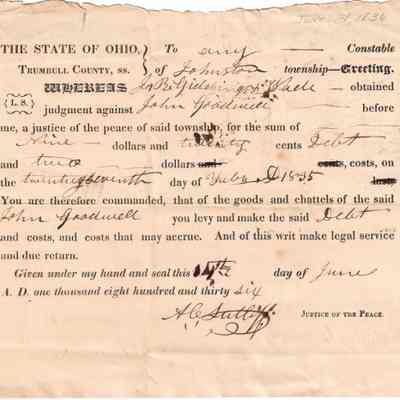 June 14 1836
THE STATE OF OHIO, To any Constable
TRUMBULL COUNTY, ss. of Johnston township—Greeting.
WHEREAS Wade obtained
{L.S.} judgment against John Goodwill before
me, a justice of the peace of said township, for the sum of
Nine dollars and twenty cents Debt
and two dollars and cents, costs, on
the twenty seventh day of July A D 1835 last
You are therefore commanded, that of the goods and chattels of the said
John Goodwell you levy and make the said Debt
and costs, and costs that may accrue. And of this writ make legal service
and due return.
Given under my hand and seal this 14th day of June
A. D. one thousand eight hundred and thirty six
JUSTICE OF THE PEACE.